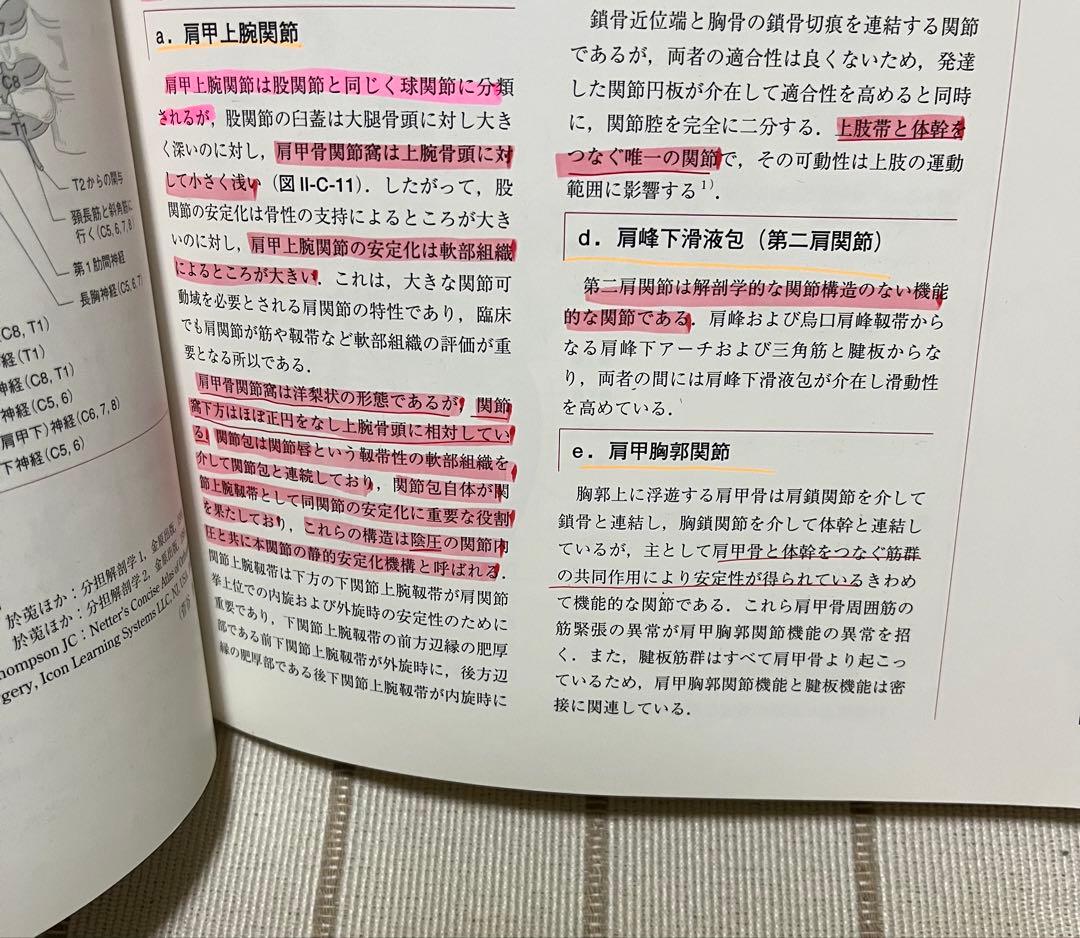 C8
T1
T2からの関与
頸長筋と斜角筋に
行く(C5,6,7,8)
第1肋間神経
長胸神経(C5,6,7)
C8, T1)
経(T1)
神経(C8, T1)
神経(C5, 6)
肩甲下)神経(C6, 7, 8)
下神経(C5, 6)
於菟ほか:分担解剖学1,金原出版,
於菟ほか:分担解剖学2,金原出版,
hompson JC:Netter's Concise Atlas of
gery, Icon Learning Systems LLC, NJ, USA
a.肩甲上腕関節
肩甲上腕関節は股関節と同じく球関節に分類
されるが,股関節の臼蓋は大腿骨頭に対し大き
く深いのに対し,肩甲骨関節窩は上腕骨頭に対
して小さく浅い(図II-C-11).したがって,股
関節の安定化は骨性の支持によるところが大き
いのに対し,肩甲上腕関節の安定化は軟部組織
によるところが大きい.これは,大きな関節可
動域を必要とされる肩関節の特性であり,臨床
でも肩関節が筋や靱帯など軟部組織の評価が重
要となる所以である.
肩甲骨関節窩は洋梨状の形態であるが,関節
窩下方はほぼ正円をなし上腕骨頭に相対してい
る.関節包は関節唇という靱帯性の軟部組織を
介して関節包と連続しており,関節包自体が関
節上腕靱帯として同関節の安定化に重要な役割
を果たしており,これらの構造は陰圧の関節内
圧と共に本関節の静的安定化機構と呼ばれる.
関節上腕靱帯は下方の下関節上腕靱帯が肩関節
挙上位での内旋および外旋時の安定性のために
重要であり,下関節上腕靱帯の前方辺縁の肥厚
部である前下関節上腕靱帯が外旋時に,後方辺
縁の肥厚部である後下関節上腕靱帯が内旋時に
鎖骨近位端と胸骨の鎖骨切痕を連結する関節
であるが,両者の適合性は良くないため,発達
した関節円板が介在して適合性を高めると同時
に,関節腔を完全に二分する.上肢帯と体幹を
つなぐ唯一の関節で,その可動性は上肢の運動
範囲に影響する1).
d.肩峰下滑液包(第二肩関節)
第二肩関節は解剖学的な関節構造のない機能
的な関節である.肩峰および烏口肩峰靱帯から
なる肩峰下アーチおよび三角筋と腱板からな
り,両者の間には肩峰下滑液包が介在し滑動性
を高めている.
e.肩甲胸郭関節
胸郭上に浮遊する肩甲骨は肩鎖関節を介して
鎖骨と連結し,胸鎖関節を介して体幹と連結し
ているが,主として肩甲骨と体幹をつなぐ筋群
の共同作用により安定性が得られているきわめ
て機能的な関節である.これら肩甲骨周囲筋の
筋緊張の異常が肩甲胸郭関節機能の異常を招
く.また,腱板筋群はすべて肩甲骨より起こっ
ているため,肩甲胸郭関節機能と腱板機能は密
接に関連している.